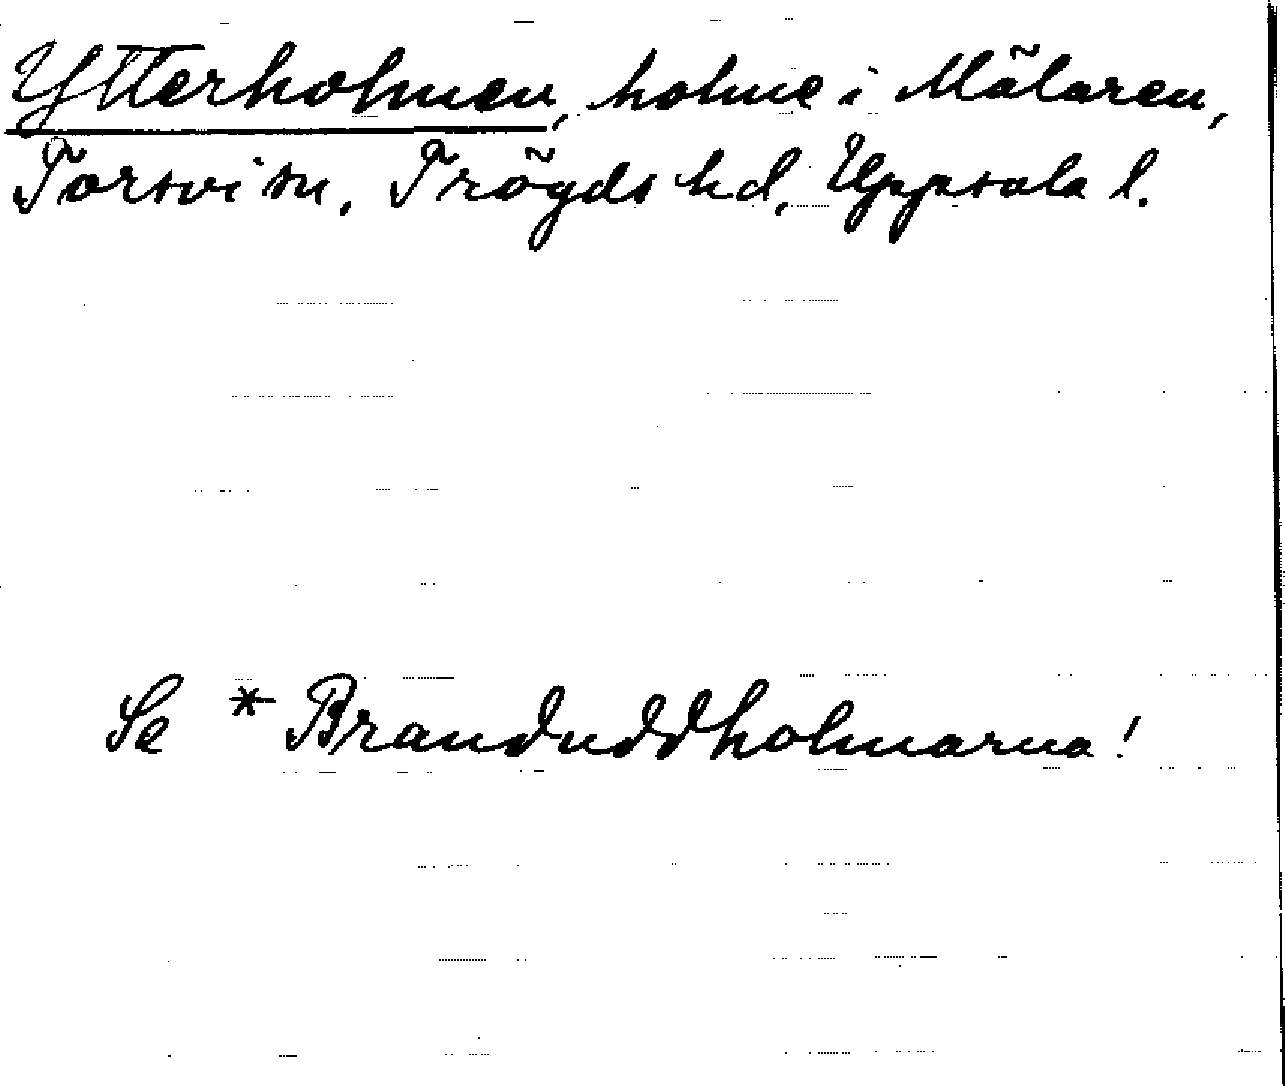 Ytterholmen, holme i Mälaren,
Torsvi sn, Trögds hd, Uppsala l.
Se * Branduddholmarna!